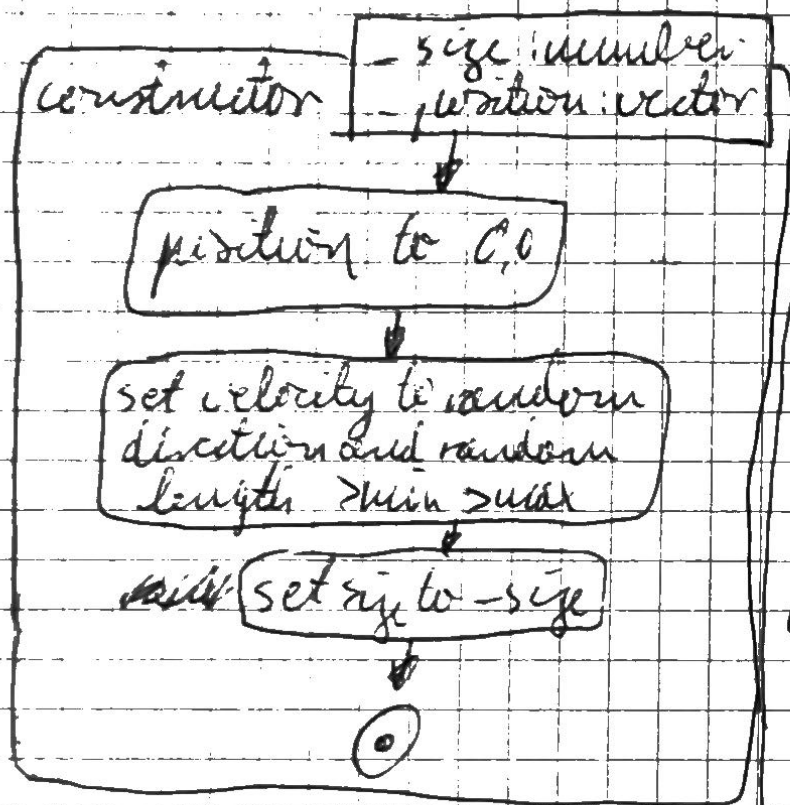 constructor
_ size : number
_ position : vector
position to 0,0
set velocity to random
direction and random
length >min >max
set size to _size